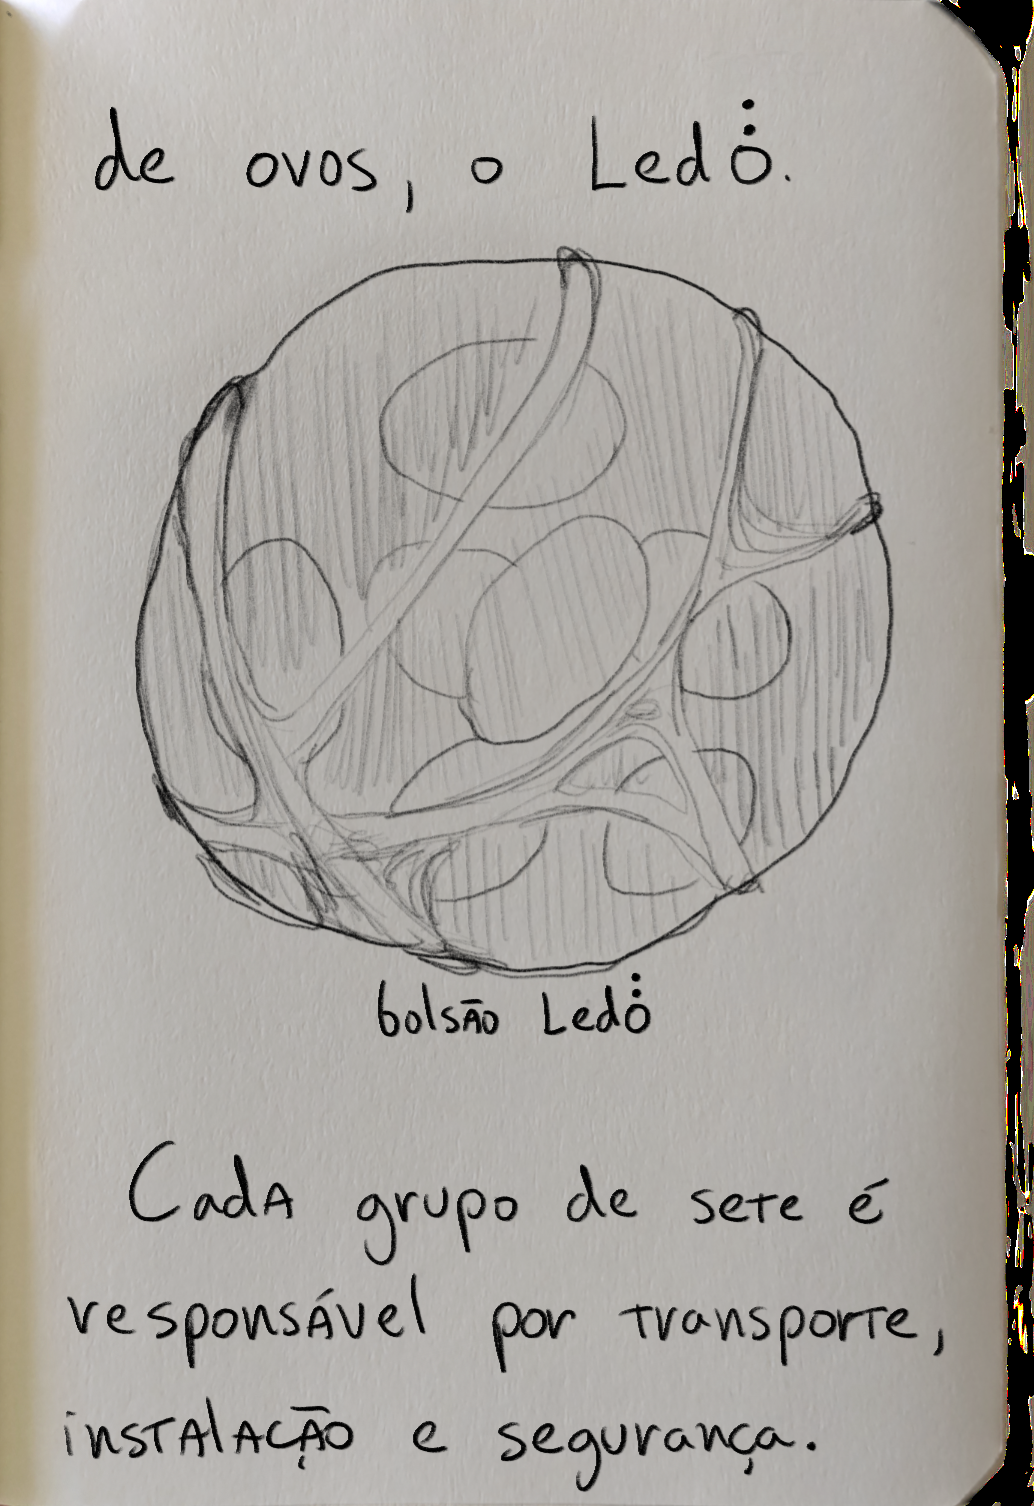 de ovos, o Ledö̇.
bolsão Ledö̇
Cada grupo de sete é
responsável por transporte,
instalação e segurança.